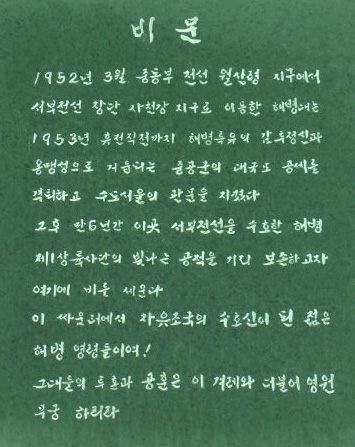 비 문
1952년 3월 중동부 전선 월산령 지구에서
서부전선 장단 사천강 지구로 이동한 해병대는
1953년 휴전직전까지 해병특유의 감투정신과
용맹성으로 거듭되는 중공군의 대규모 공세를
격퇴하고 수도서울의 관문을 지켰다
그후 만6년간 이곳 서부전선을 수호한 해병
제1상륙사단의 빛나는 공적을 기리 보존하고자
여기에 비를 세운다
이 싸움터에서 자유조국의 수호신이 된 젊은
해병 영령들이여!
그대들의 투혼과 공훈은 이 겨레와 더불어 영원
무궁 하리라